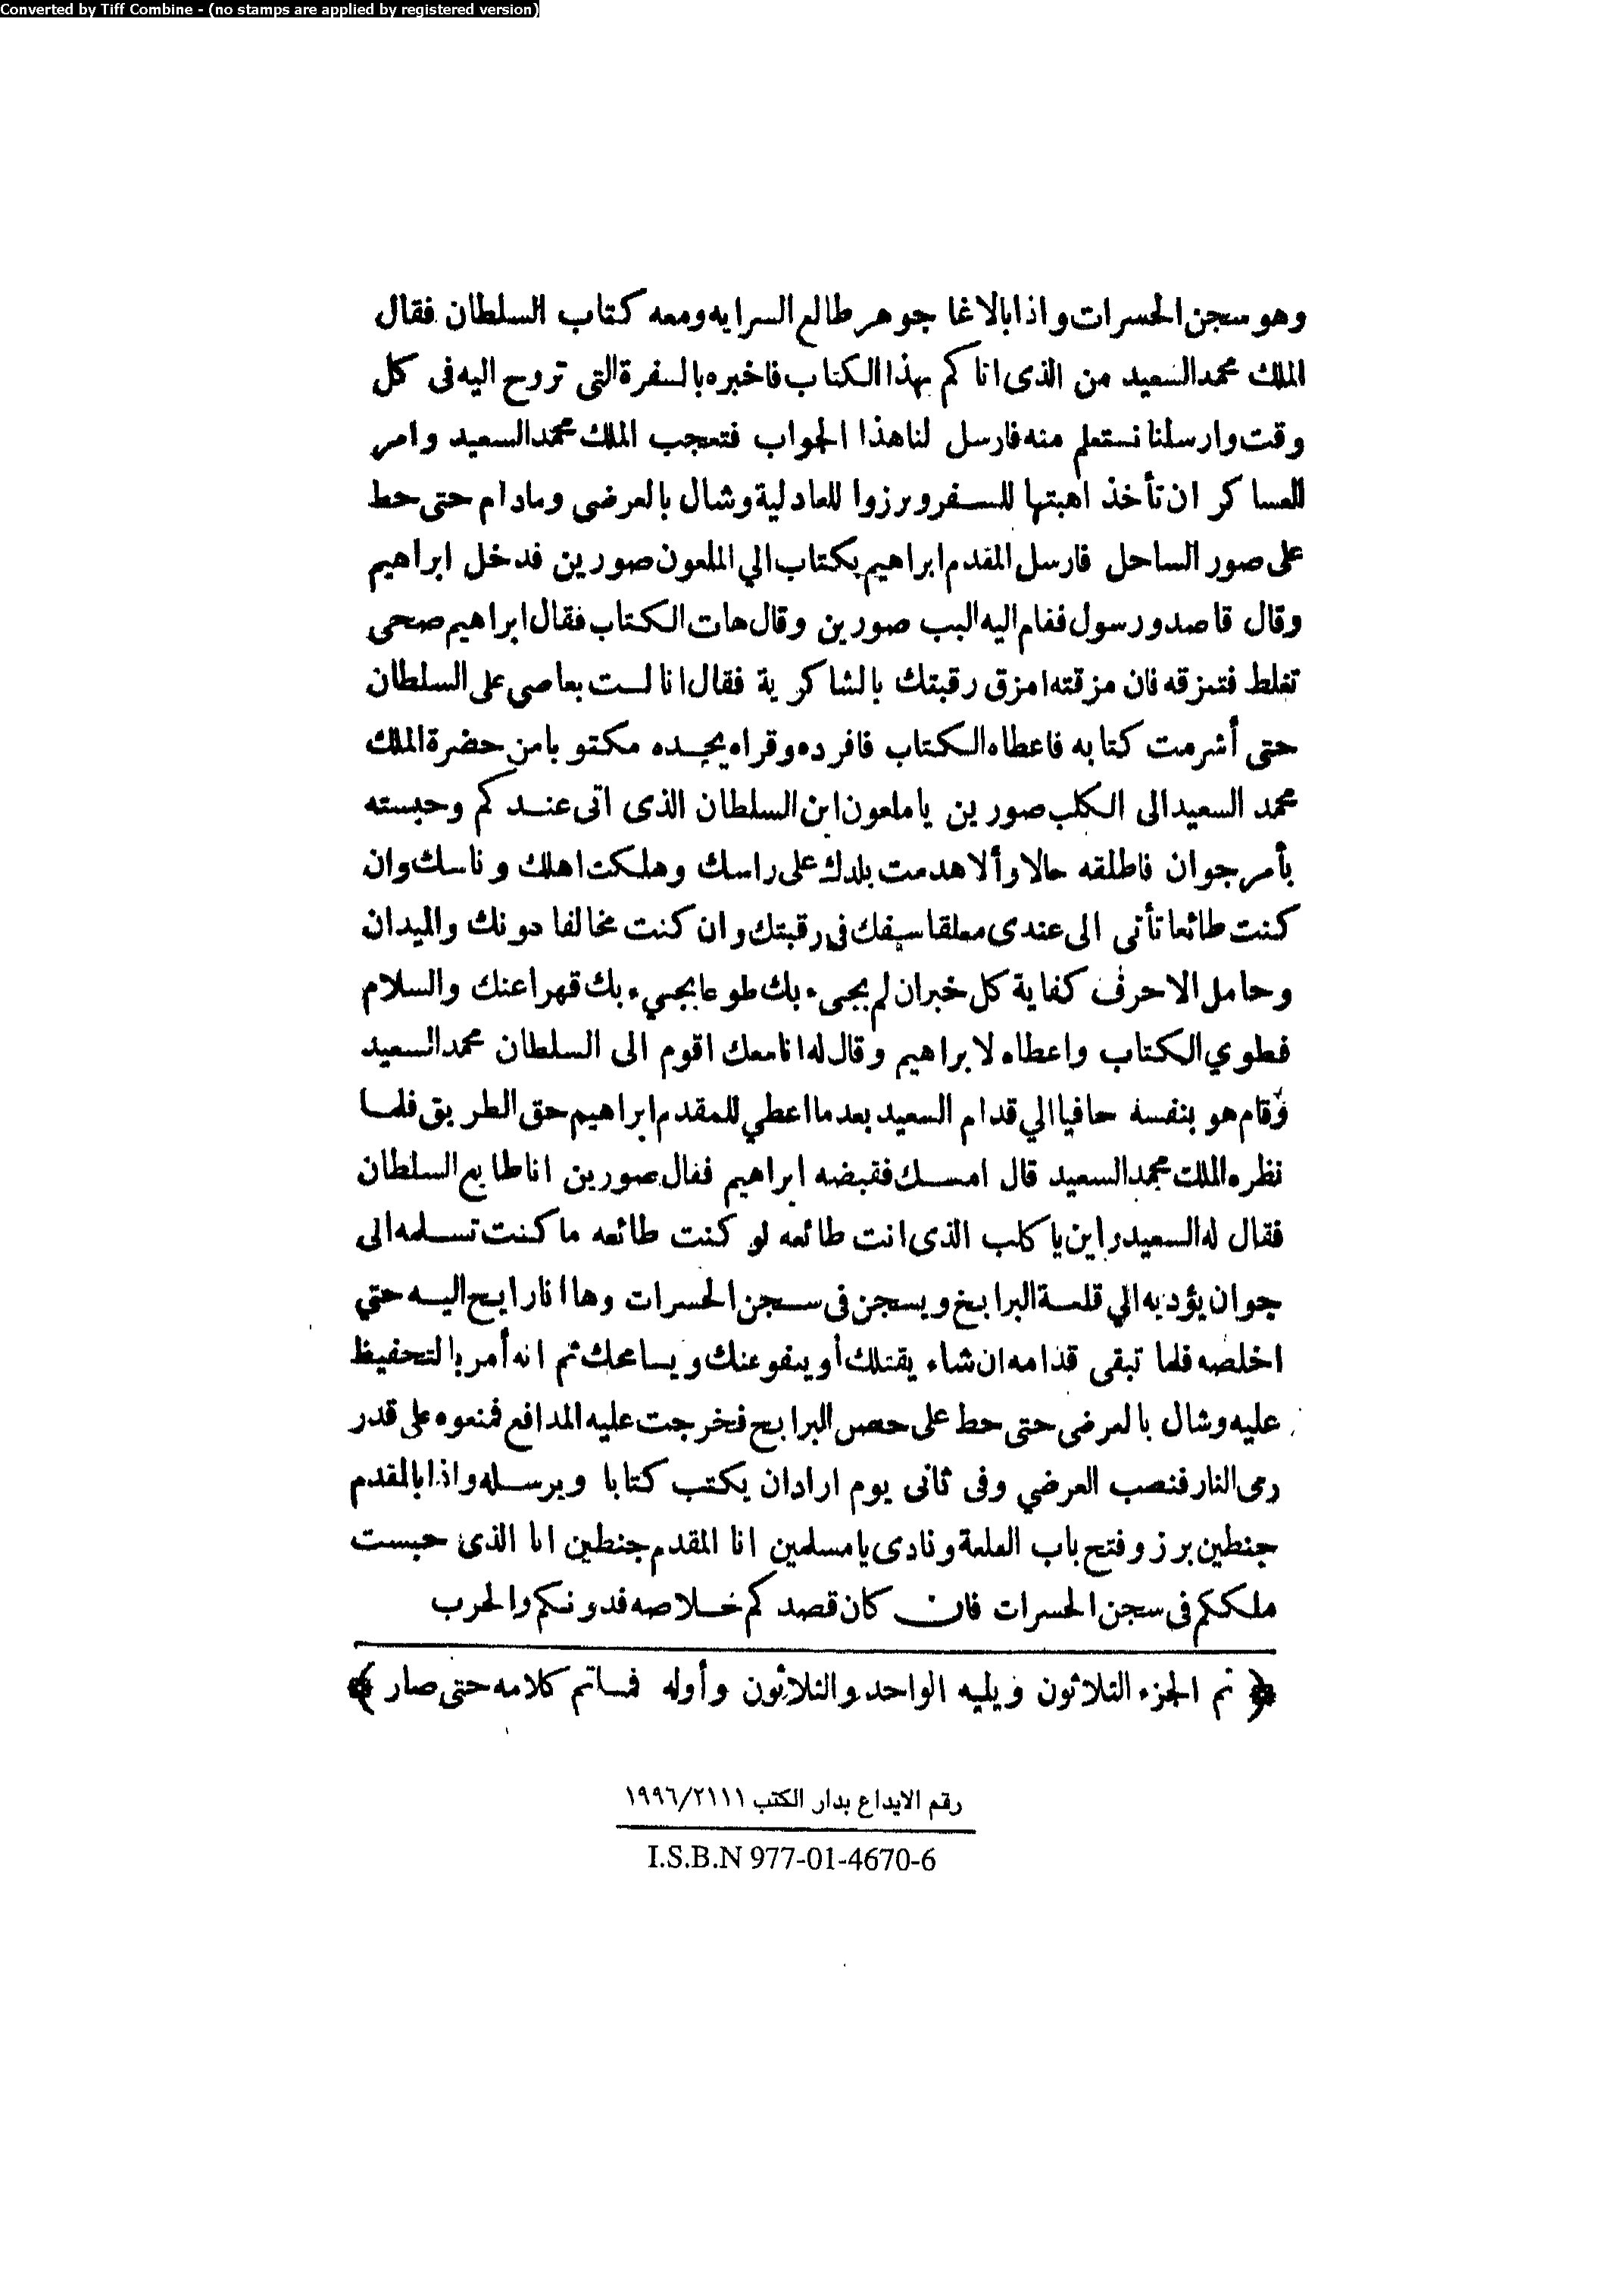 Converted by Tiff Combine - (no stamps are applied by registered version)
وهو سجن الحسرات واذا بالاغا جوهر طالع السرايه ومعه كتاب السلطان فقال
الملك محمد السعيد من الذى اتاكم بهذا الكتاب فاخبره بالسفرة التى تروح اليه فى كل
وقت وارسلنا نستعلم منه فارسل لنا هذا الجواب فتعجب الملك محمد السعيد وامر
العساكر ان تأخذ اهبتها للسفر وبرزوا للعادلية وشال بالعرضى ومادام حتى حط
على صور الساحل فارسل المقدم ابراهيم بكتاب الي الملعون صورين فدخل ابراهيم
وقال قاصد ورسول فقام اليه البب صورين وقال هات الكتاب فقال ابراهيم صحى
تغلط فتمزقه فان مزقته امزق رقبتك بالشاكرية فقال انا لست بعاصى على السلطان
حتى أشرمت كتابه فاعطاه الكتاب فافرده وقراه يجده مكتوبا من حضرة الملك
محمد السعيد الى الكلب صورين يا ملعون ابن السلطان الذى اتى عندكم وحبسته
بأمر جوان فاطلقه حالا وألا هدمت بلدك على راسك وهلكت اهلك وناسك وان
كنت طائعا تأتى الى عندى معلقا سيفك فى رقبتك وان كنت مخالفا دونك والميدان
وحامل الاحرف كفاية كل خبر ان لم يجىء بك طوعا يجيء بك قهرا عنك والسلام
فطوي الكتاب واعطاه لابراهيم وقال له انا معك اقوم الى السلطان محمد السعيد
وقام هو بنفسه حافيا الي قدام السعيد بعد ما اعطي للمقدم ابراهيم حق الطريق فلما
نظره الملك محمد السعيد قال امسك فقبضه ابراهيم فقال صورين انا طايع السلطان
فقال له السعيد راين يا كلب الذى انت طائعه لو كنت طائعه ما كنت تسلمه الى
جوان يؤديه الي قلعة البرايخ ويسجن فى سجن الحسرات وها انا رايح اليه حتي
اخلصه فلما تبقى قدامه ان شاء يقتلك أو يعفو عنك ويسامحك ثم انه أمر بالتحفيظ
عليه وشال بالعرضى حتى حط على حصن البرايج فخرجت عليه المدافع فمنعوه على قدر
رمى النار فنصب العرضي وفى ثانى يوم اراد ان يكتب كتابا ويرسله واذا بالمقدم
جنطين برز وفتح باب القلعة ونادى يا مسلمين انا المقدم جنطين انا الذى حبست
ملككم فى سجن الحسرات فان كان قصدكم خلاصه فدونكم والحرب
﴿ تم الجزء الثلاثون ويليه الواحد والثلاثون وأوله فما تم كلامه حتى صار ﴾
رقم الايداع بدار الكتب ١٩٩٦/٢١١١
I.S.B.N 977-01-4670-6